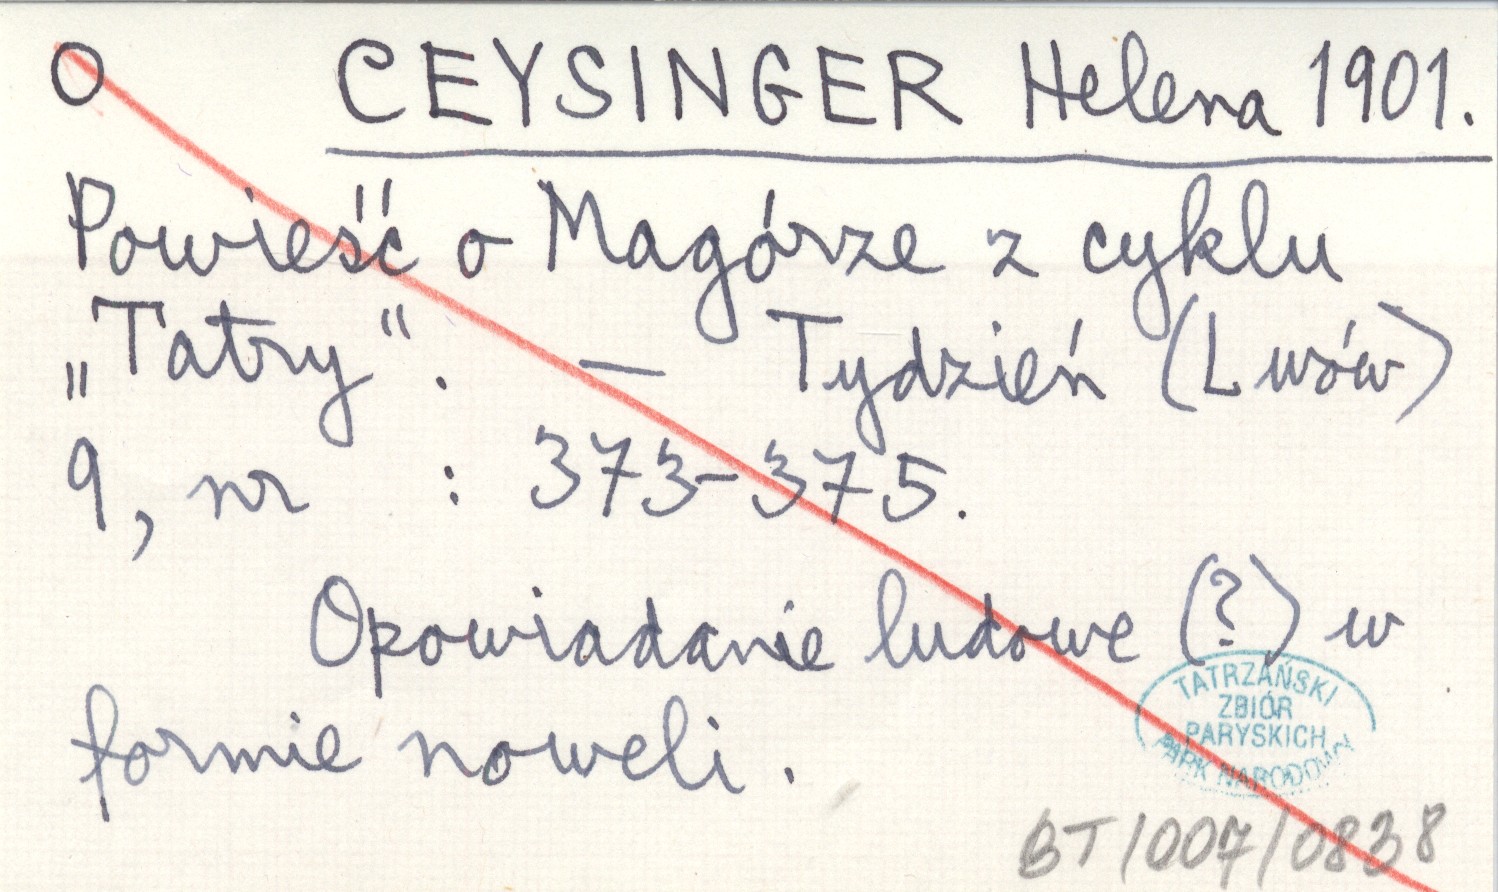 O CEYSINGER Helena 1901.
Powieść o Magórze z cyklu
„Tatry". — Tydzień (Lwów)
9, nr : 373-375.
Opowiadanie ludowe (?) w
formie noweli.
TATRZAŃSKI
ZBIÓR
PARYSKICH
PARK NARODOWY
BT/007/0838